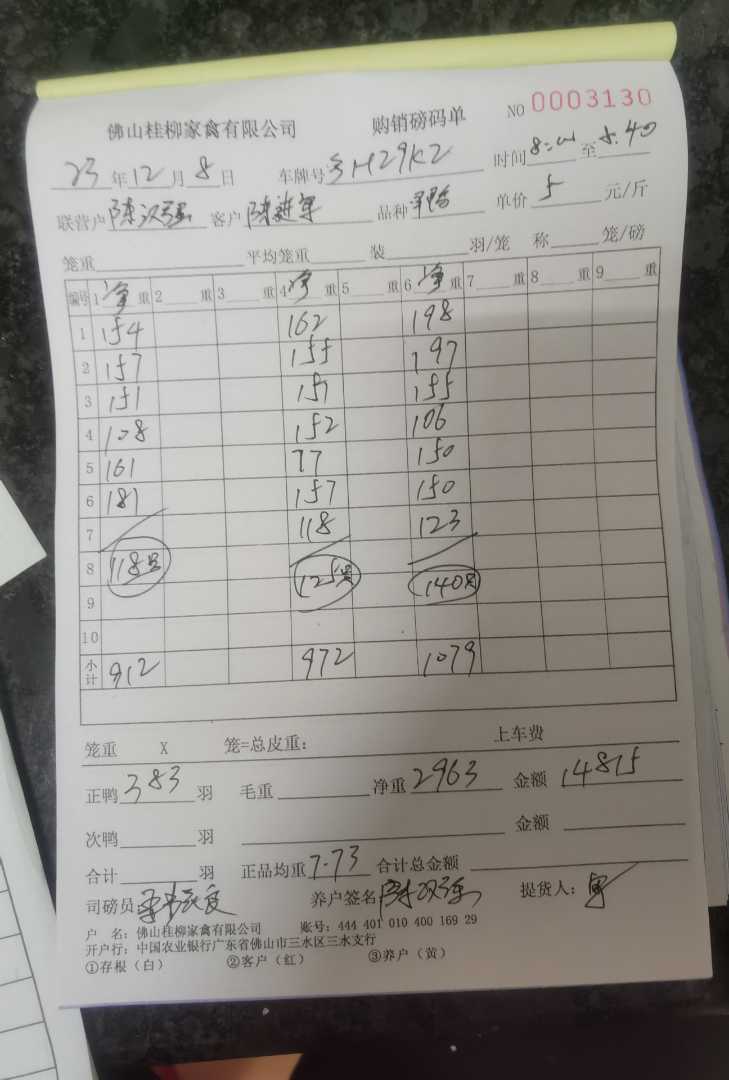 佛山桂柳家禽有限公司 购销磅码单 NO 0003130
23年12月8日 车牌号 H29K2 时间 8: 至 5:40
联营户 陈汉强 客户 陈进军 品种 单价 5 元/斤
笼重 平均笼重 装 羽/笼 称 笼/磅
编号 1 净重 2 重 3 重 4 净重 5 重 6 净重 7 重 8 重 9 重
1 154 162 198
2 157 155 197
3 151 151 155
4 108 152 106
5 161 77 150
6 181 157 150
7 118 123
8 118只 125只 140只
9
10
小计 912 972 1079
笼重 X 笼=总皮重: 上车费
正鸭 383 羽 毛重 净重 2963 金额 14815
次鸭 羽 金额
合计 羽 正品均重 7.73 合计总金额
司磅员 养户签名 陈汉强 提货人:
户 名: 佛山桂柳家禽有限公司 账号: 444 401 010 400 169 29
开户行: 中国农业银行广东省佛山市三水区三水支行
①存根(白) ②客户(红) ③养户(黄)